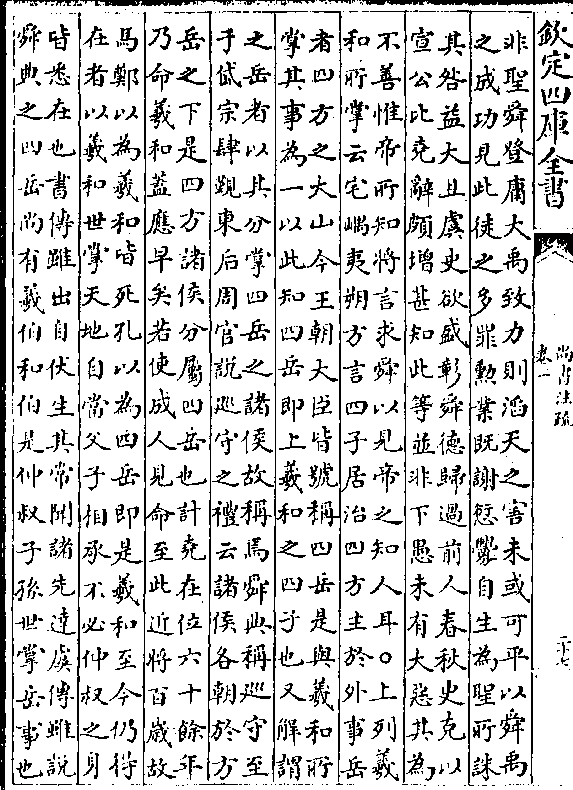 欽定四庫全書
尚書注疏
卷一
二十七
非聖舜登庸大禹致力則滔天之害未或可平以舜禹
之成功見此徒之多罪勲業既謝愆釁自生為聖所誅
其咎益大且虞史欲盛彰舜德歸過前人春秋史克以
宣公比堯辭頗增甚知此等並非下愚未有大惡其為
不善惟帝所知將言求舜以見帝之知人耳○上列羲
和所掌云宅嵎夷朔方言四子居治四方主於外事岳
者四方之大山今王朝大臣皆號稱四岳是與羲和所
掌其事為一以此知四岳即上羲和之四子也又解謂
之岳者以其分掌四岳之諸侯故稱焉舜典稱巡守至
于岱宗肆覲東后周官說巡守之禮云諸侯各朝於方
岳之下是四方諸侯分屬四岳也計堯在位六十餘年
乃命羲和蓋應早矣若使成人見命至此近將百歲故
馬鄭以為羲和皆死孔以為四岳即是羲和至今仍得
在者以羲和世掌天地自當父子相承不必仲叔之身
皆悉在也書傳雖出自伏生其常聞諸先達虞傳雖說
舜典之四岳尚有羲伯和伯是仲叔子孫世掌岳事也